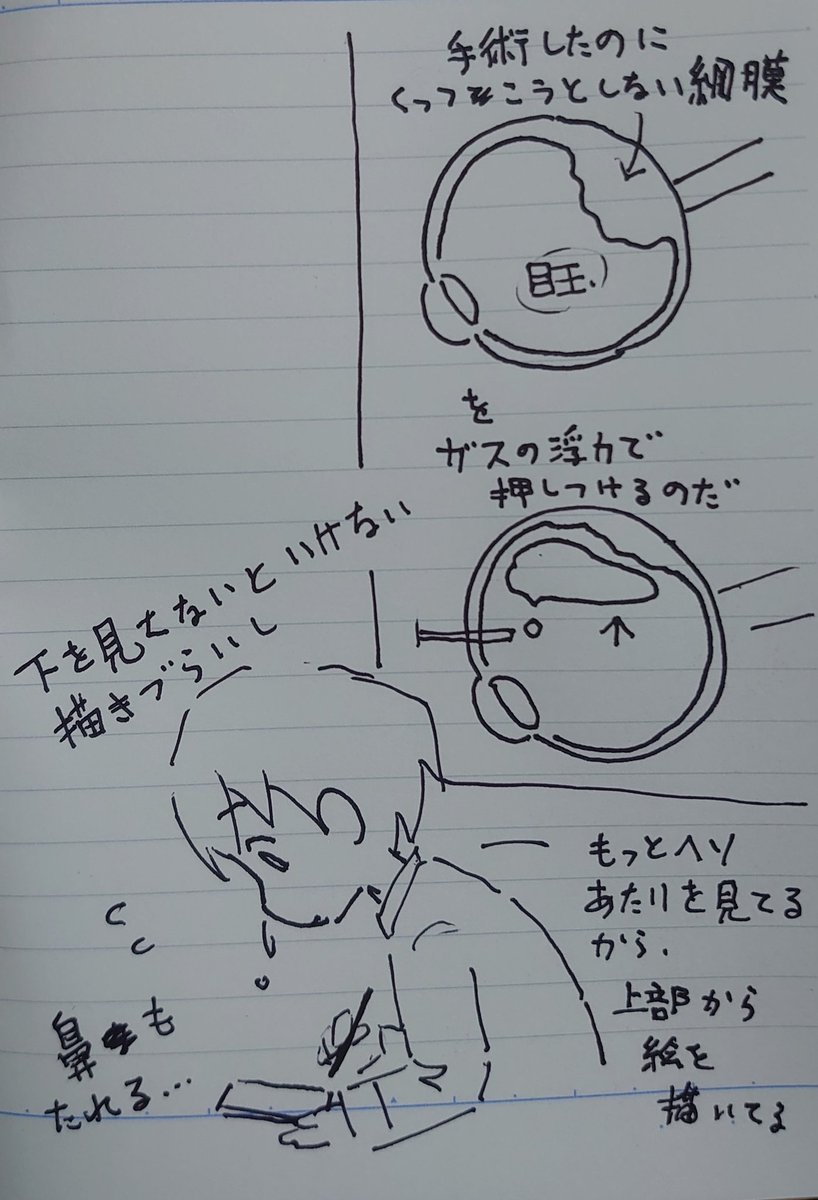 手術したのに
くっつこうとしない網膜
眼
を
ガスの浮力で
押しつけるのだ
下を見てないといけない
描きづらいし
もっとヘソ
あたりを見てる
から.
上部から
絵を
描いてる
鼻も
たれる…